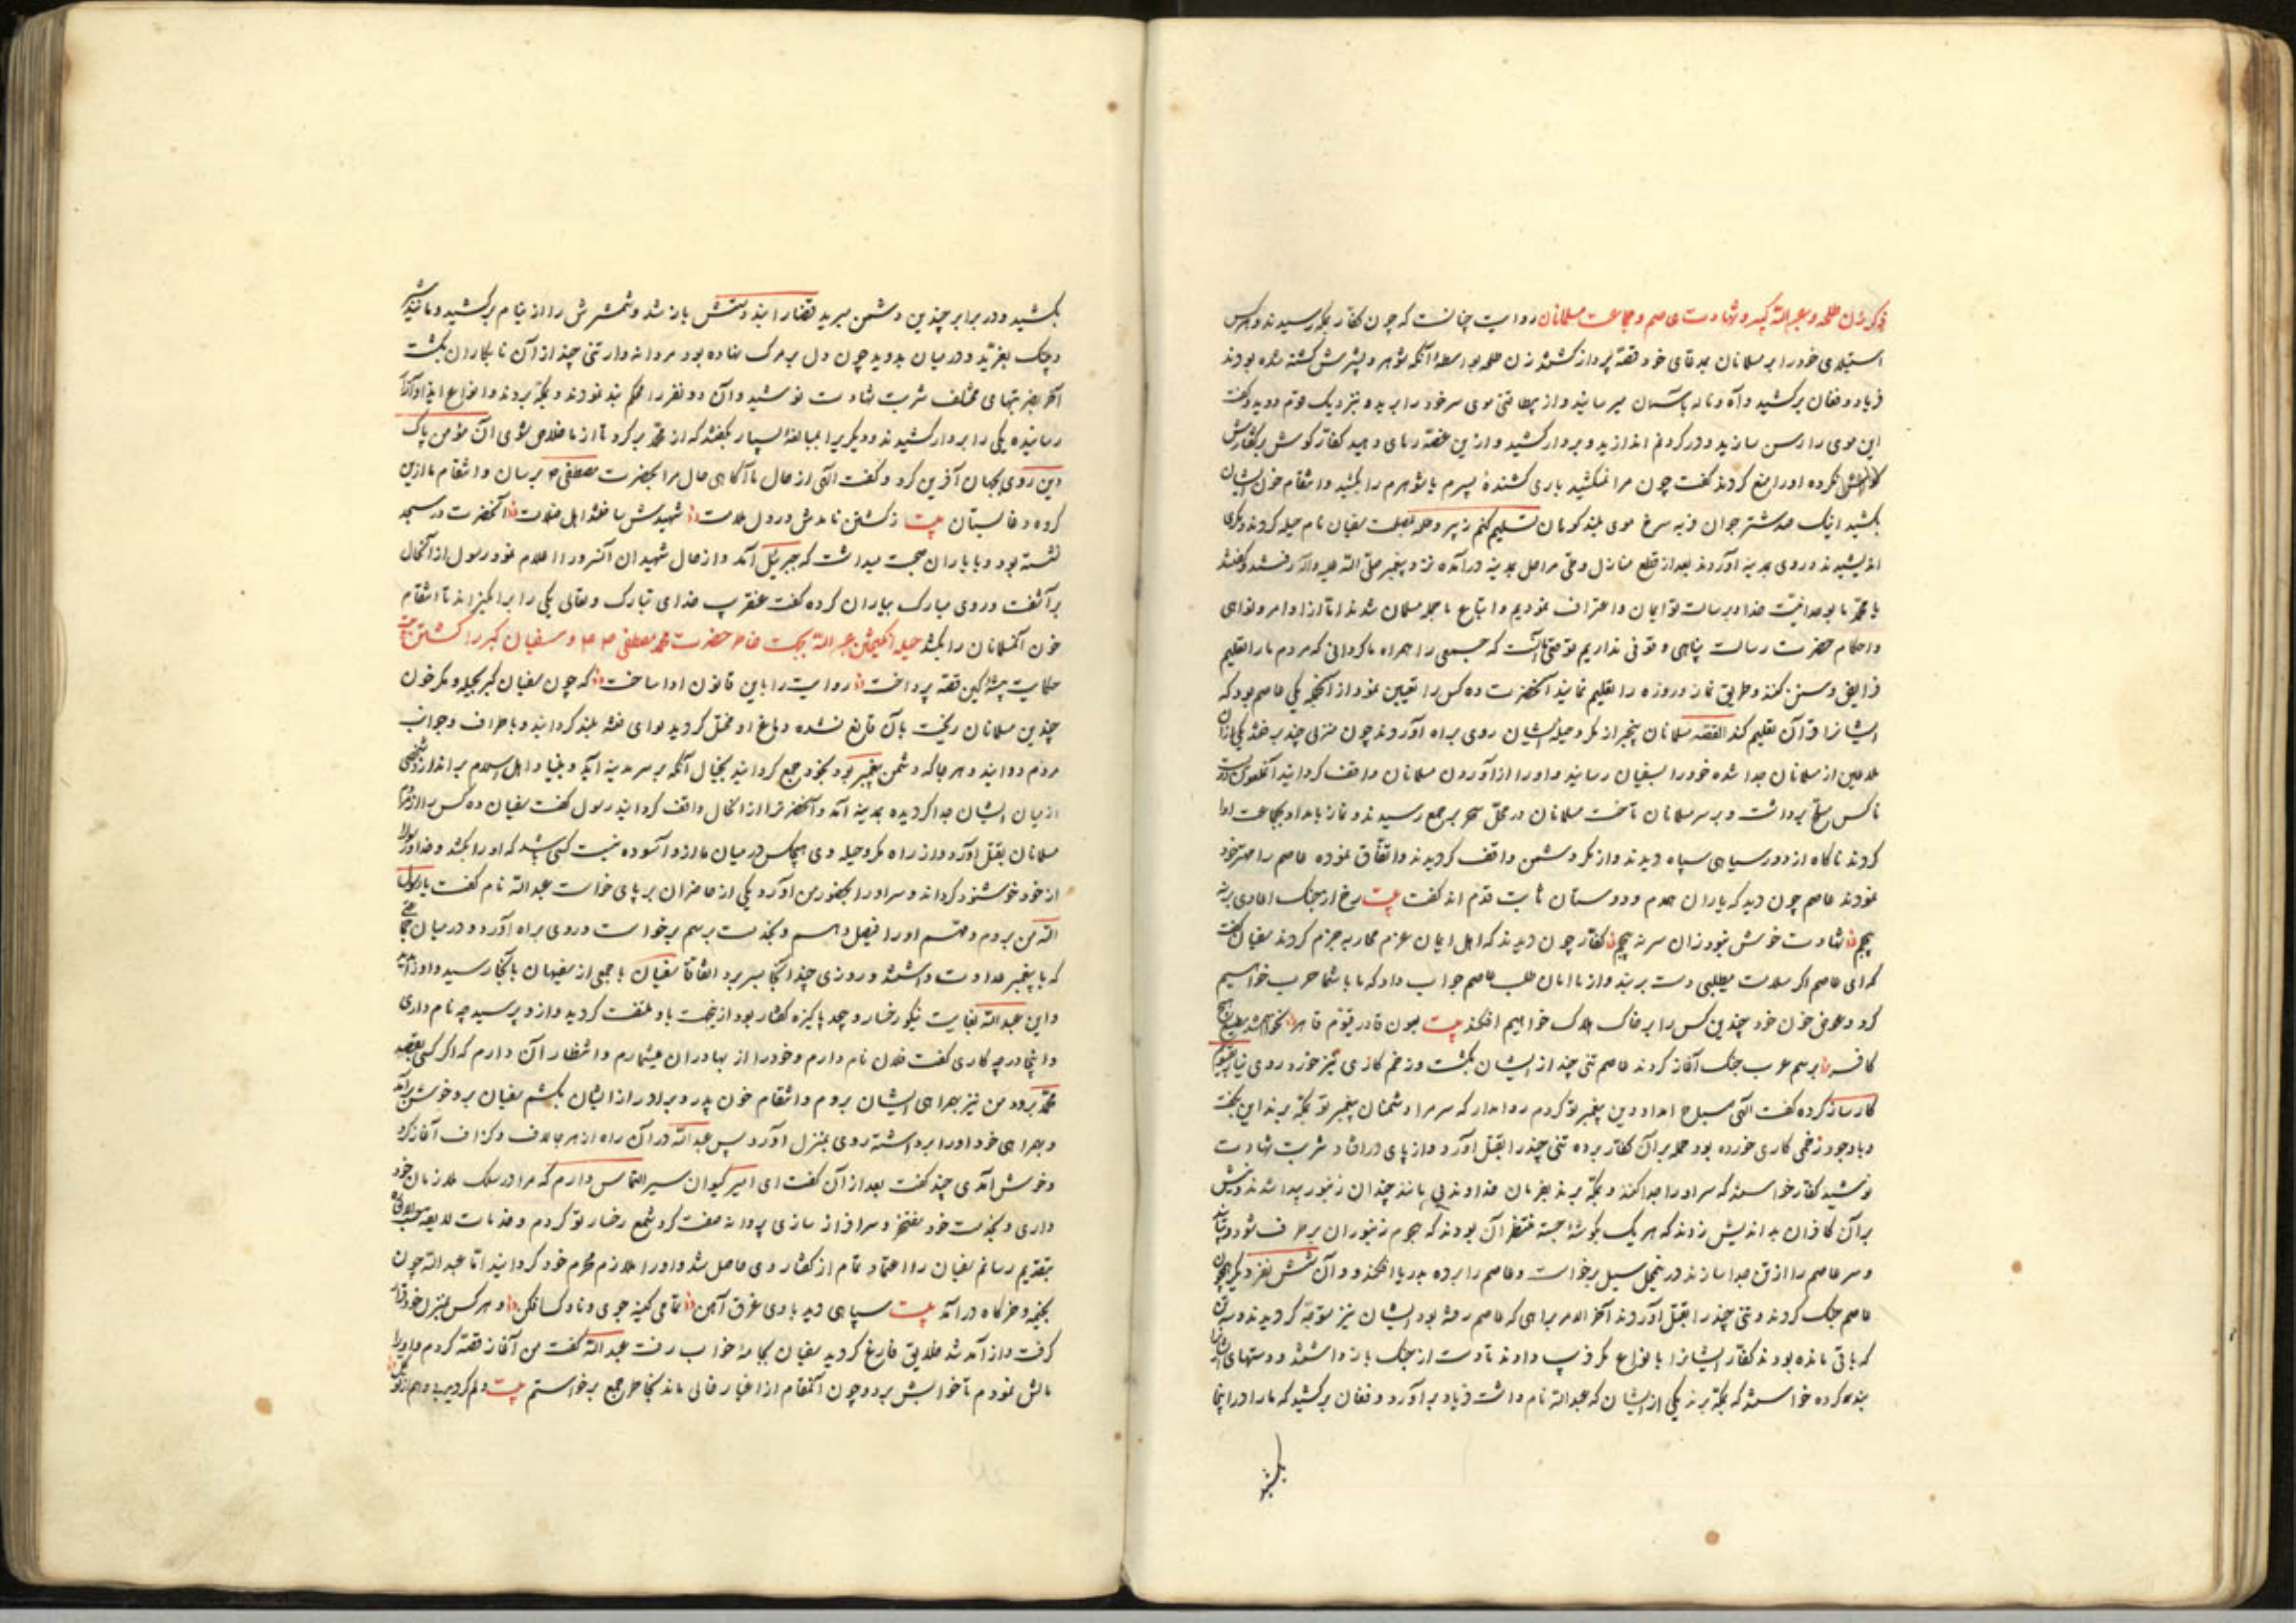 ذکر زن طلحه و عبد الله کبیر و شهادت عاصم و جماعت مسلمانان روایت چنانست که چون کفار بمکه رسیدند و هرکس
استیلای خود را بر مسلمانان بمدعای خود قصه پرداز کشتند زن طلحه بواسطهٔ آنکه شوهر و پسرش کشته شده بودند
فریاد و فغان برکشید و آه و ناله بآسمان میرسانید و از بیطاقتی موی سر خود را برید و بنزدیک قوم دوید و گفت
این موی را رسن سازید و در گردنم اندازید و بر دار کشید و ازین غصه رهای دهید کفار گوش
نکرده او را منع کردند گفت چون مرا نمیکشید باری کشندهٔ پسرم یا شوهرم را بکشید و انتقام خون ایشان
بکشید اینک صد شتر جوان فربه سرخ موی بلند کوهان تسلیم کنم سفیان نام حیله کر
اندیشیدند و روی بمدینه آوردند بعد از قطع منازل و طی مراحل بمدینه درآمده نزد پیغمبر صلی الله علیه وآله رفتند و گفتند
یا محمد ما بوحدانیت خدا و برسالت تو ایمان و اعتراف نمودیم و اتباع ما جمله مسلمان شدند اما از اوامر و نواهی
و احکام حضرت رسالت پناهی وقوفی نداریم توقع آنست که جمعی را همراه ما گردانی که مردم ما را تعلیم
فرایض و سنن کنند و طریق نماز و روزه را تعلیم نمایند آنحضرت ده کس را تعیین نمود از آنجمله یکی عاصم بود که
ایشانرا قرآن تعلیم کند القصه مسلمانان بیخبر از مکر و حیله ایشان روی براه آوردند چون منزلی چند برفتند یکی از آن
ملاعین از مسلمانان جدا شده خود را بسفیان رسانید و او را از آوردن مسلمانان واقف گردانید آنملعون
ناکس مسلح برداشت و بر سر مسلمانان تاخت مسلمانان در محل سحر بر جمع رسیدند و نماز بامداد بجماعت ادا
کردند ناگاه از دور سیاهی سپاه دیدند و از مکر دشمن واقف گردیدند و اتفاق نموده عاصم را مهتر خود
نمودند عاصم چون دید که یاران همدم و دوستان ثابت قدم اند گفت بیت رخ از جنگ اعادی بر نه
پیچم شهادت خوش بود زان سر نه پیچم کفار چون دیدند که اهل ایمان عزم محاربه جزم کردند سفیان گفت
که ای عاصم اگر سلامت میطلبی دست بر بند و از ما امان طلب عاصم جواب داد که ما با شما حرب خواهیم
کرد و عوض خون خود چندین کس را بر خاک هلاک خواهیم افکند بیت بعون قادر قیوم قاهر
کافر برسم عرب جنگ آغاز کردند عاصم تنی چند از ایشان بکشت و زخم کاری نیز خورد روی نیاز
کارساز کرده گفت الهی امداد دین پیغمبر تو کردم روا مدار که سر مرا دشمنان پیغمبر تو بمکه برند این بگفت
و با وجود زخمی کاری خورده بود حمله بر آن کفار برده تنی چند را بقتل آورد و از پای در افتاد و شربت شهادت
نوشید کفار خواستند که سر او را جدا کنند و بمکه برند بفرمان خداوند بی مانند چندان زنبور پیدا شدند و نیش
بر آن کافران بد اندیش زدند که هر یک بگوشهٔ جسته منتظر آن بودند که هجوم زنبوران بر طرف شود
و سر عاصم را از تن جدا سازند در محل سیل برخواست و عاصم را برده بدریا افکند و آن شش نفر دیگر همچون
عاصم جنگ کردند و تنی چند را بقتل آوردند آخر الامر براهی که عاصم رفته بود ایشان نیز متوجه گردیدند و سه تن
که باقی مانده بودند کفار ایشانرا بانواع مکر و فریب دادند تا دست از جنگ باز داشتند و دستهای ایشانرا
بند کرده خواستند که بمکه برند یکی از ایشان که عبد الله نام داشت فریاد برآورد و فغان برکشید که ما را در اینجا
بکشید
بکشید و در برابر چندین دشمن مبرید قضا را بند دستش باز شد و شمشیرش را از نیام برکشید و مانند شیر
و پلنگ بغرید و در میان دوید چون دل بر مرگ نهاده بود مردانه وار تنی چند از آن نابکاران بکشت
آخر بضربتهای مختلف شربت شهادت نوشید و آن دو نفر را محکم بند نمودند و بمکه بردند و انواع ایذا و آزار
رسانیده یکی را بر دار کشیدند و دیگریرا بمبالغهٔ بسیار بگفتند که از محمد برگرد تا از ما خلاص شوی آن مؤمن پاک
دین روی بجهان آفرین کرد و گفت الهی از حال ما آگاهی حال مرا بحضرت مصطفی م برسان و انتقام ما ازین
گروه دغا بستان بیت ز کشتن نامدش در دل ملامت شهیدش ساختند اهل ضلالت آنحضرت در مسجد
نشسته بود و با یاران صحبت میداشت که جبرئیل آمد و از حال شهیدان آنسرور را اعلام نمود رسول از آنحال
برآشفت و روی مبارک بیاران کرده گفت عنقریب خدای تبارک و تعالی یکی را برانگیزاند تا انتقام
خون آنمسلمانان را بکشد حیله انگیختن عبد الله بجهت خاطر حضرت محمد مصطفی ص م و سفیان کبر را کشتن
حکایت پیشه کین قصه پرداخت روایت را باین قانون ادا ساخت که چون سفیان کبر بحیله و مکر خون
چندین مسلمانان ریخت بآن قانع نشده دماغ او مختل گردید لوای فتنه بلند گردانید و باطراف و جوانب
مردم دوانید و هر جا که دشمن پیغمبر بود بخود جمع گردانید بخیال آنکه بر سر مدینه آید و بنیاد اهل اسلام براندازد شخصی
از میان ایشان جدا گردیده بمدینه آمد و آنحضرترا از آنحال واقف گردانید رسول گفت سفیان ده کس را از
مسلمانان بقتل آورد و از راه مکر و حیله وی هیچکس در میان ما از او آسوده نیست کسی باشد که او را بکشد و خدا و رسول را
از خود خوشنود گرداند و سر او را بحضور من آورد یکی از حاضران بر پای خواست عبد الله نام گفت یا رسول
الله من بروم و مهم او را فیصل دهم و بخدمت برسم برخواست و روی براه آورد و در میان
که با پیغمبر عداوت داشتند و روزی چند آنجا بسر برد اتفاقا سفیان با جمعی از سفیهان بآنجا رسید و او را
و این عبد الله بغایت نیکو رخسار و چند پاکیزه گفتار بود از اینجهت باو ملتفت گردید و ازو پرسید چه نام داری
و اینجا در چه کاری گفت فلان نام دارم و خود را از بهادران میشمارم و انتظار آن دارم که اگر کسی بقصد
محمد برود من نیز بهمراهی ایشان بروم و انتقام خون پدر و برادر از ایشان بکشم سفیان برو خوش برآمد
و بهمراهی خود او را برداشته روی بمنزل آورد پس عبد الله در آن راه از هر جا لاف و گزاف آغاز کرد
و خوش آمدی چند گفت بعد از آن گفت ای امیر کیوان سیر التماس دارم که مرا در سلک ملازمان خود
داری و بخدمت خود مفتخر و سرافراز سازی پروانه صفت گرد شمع رخسار تو گردم و خدمات لایقه
بتقدیم رسانم سفیان را اعتماد تمام از گفتار وی حاصل شد و او را ملازم محرم خود گردانید اما عبد الله چون
بخیمه و خرگاه درآمد بیت سپاهی دید بادی غرق آهن تمامی کینه جوی و ناوک افکن و هر کس بمنزل خود قرار
گرفت و از آمد شد خلایق فارغ گردید سفیان بجامه خواب رفت عبد الله گفت من آغاز قصه کردم و او را
مالش نمودم تا خوابش برد و چون آنمقام از اغیار خالی ماند بخاطر جمع برخواستم بیت